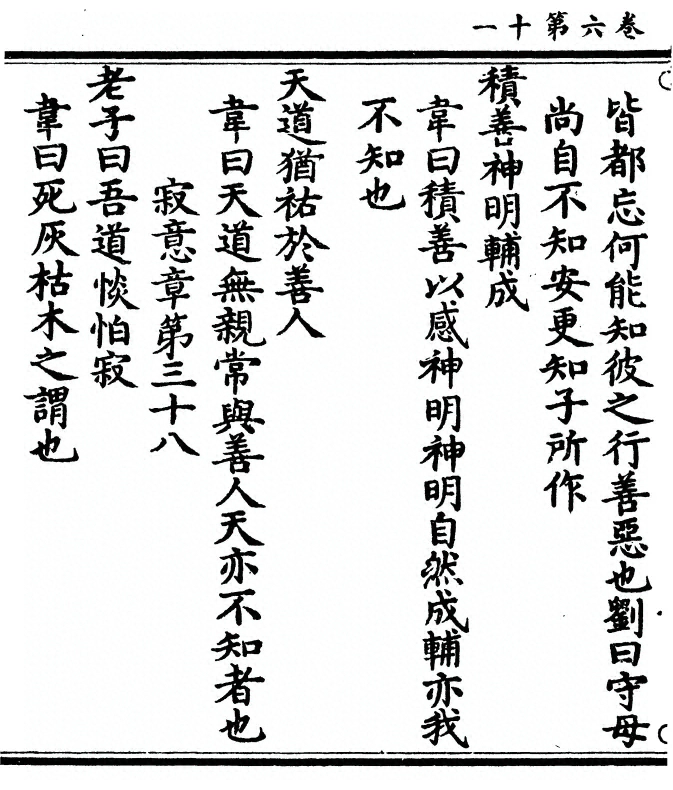 卷六第十一
皆都忘何能知彼之行善惡也劉曰守母
尚自不知安更知子所作
積善神明輔成
韋曰積善以感神明神明自然成輔亦我
不知也
天道猶祐於善人
韋曰天道無親常與善人天亦不知者也
寂意章第三十八
老子曰吾道惔怕寂
韋曰死灰枯木之謂也